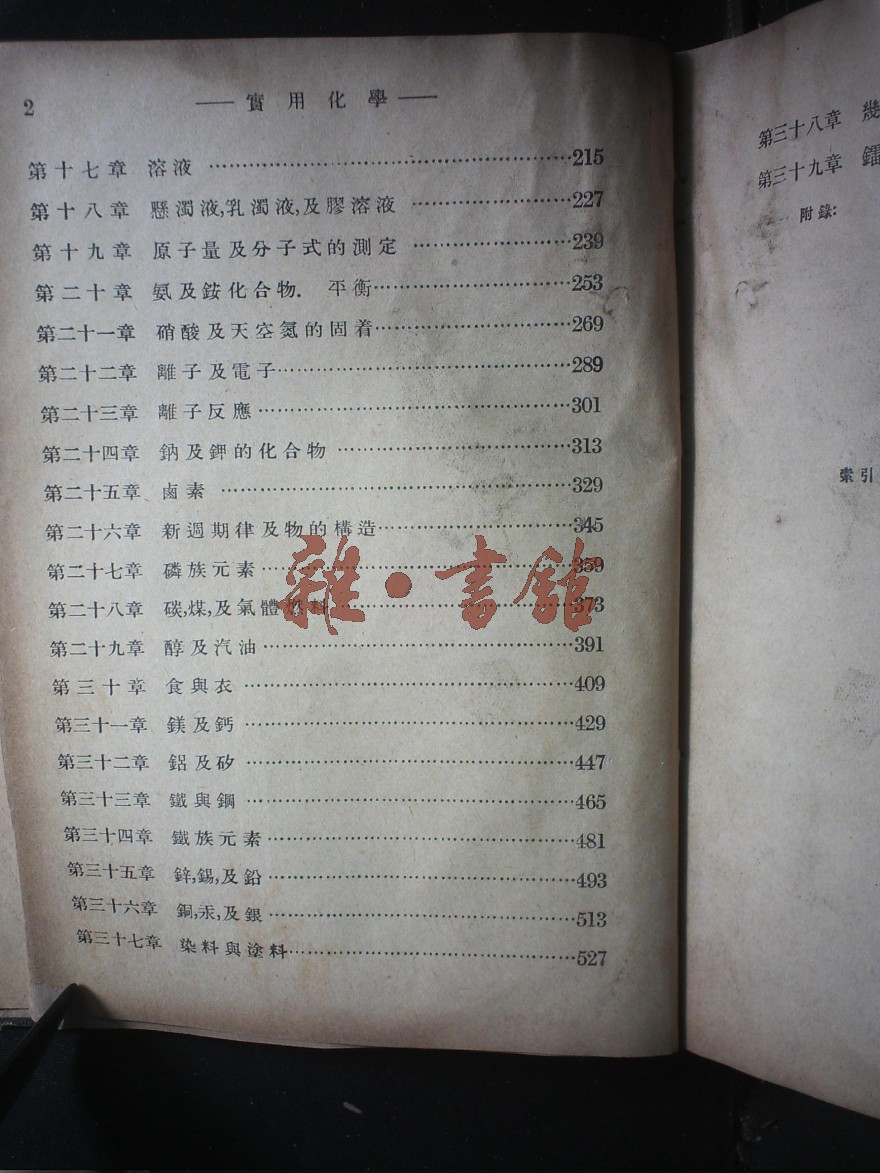 2 —— 實用化學 ——
第十七章 溶液 ⋯⋯⋯⋯ 215
第十八章 懸濁液,乳濁液,及膠溶液 ⋯⋯⋯⋯ 227
第十九章 原子量及分子式的測定 ⋯⋯⋯⋯ 239
第二十章 氨及銨化合物. 平衡 ⋯⋯⋯⋯ 253
第二十一章 硝酸及天空氮的固着 ⋯⋯⋯⋯ 269
第二十二章 離子及電子 ⋯⋯⋯⋯ 289
第二十三章 離子反應 ⋯⋯⋯⋯ 301
第二十四章 鈉及鉀的化合物 ⋯⋯⋯⋯ 313
第二十五章 鹵素 ⋯⋯⋯⋯ 329
第二十六章 新週期律及物的構造 ⋯⋯⋯⋯ 345
第二十七章 磷族元素 ⋯⋯⋯⋯ 359
第二十八章 碳,煤,及氣體燃料 ⋯⋯⋯⋯ 373
第二十九章 醇及汽油 ⋯⋯⋯⋯ 391
第三十章 食與衣 ⋯⋯⋯⋯ 409
第三十一章 鎂及鈣 ⋯⋯⋯⋯ 429
第三十二章 鋁及矽 ⋯⋯⋯⋯ 447
第三十三章 鐵與鋼 ⋯⋯⋯⋯ 465
第三十四章 鐵族元素 ⋯⋯⋯⋯ 481
第三十五章 鋅,錫,及鉛 ⋯⋯⋯⋯ 493
第三十六章 銅,汞,及銀 ⋯⋯⋯⋯ 513
第三十七章 染料與塗料 ⋯⋯⋯⋯ 527
雜·書館
第三十八章 幾
第三十九章 鐳
附錄:
索引